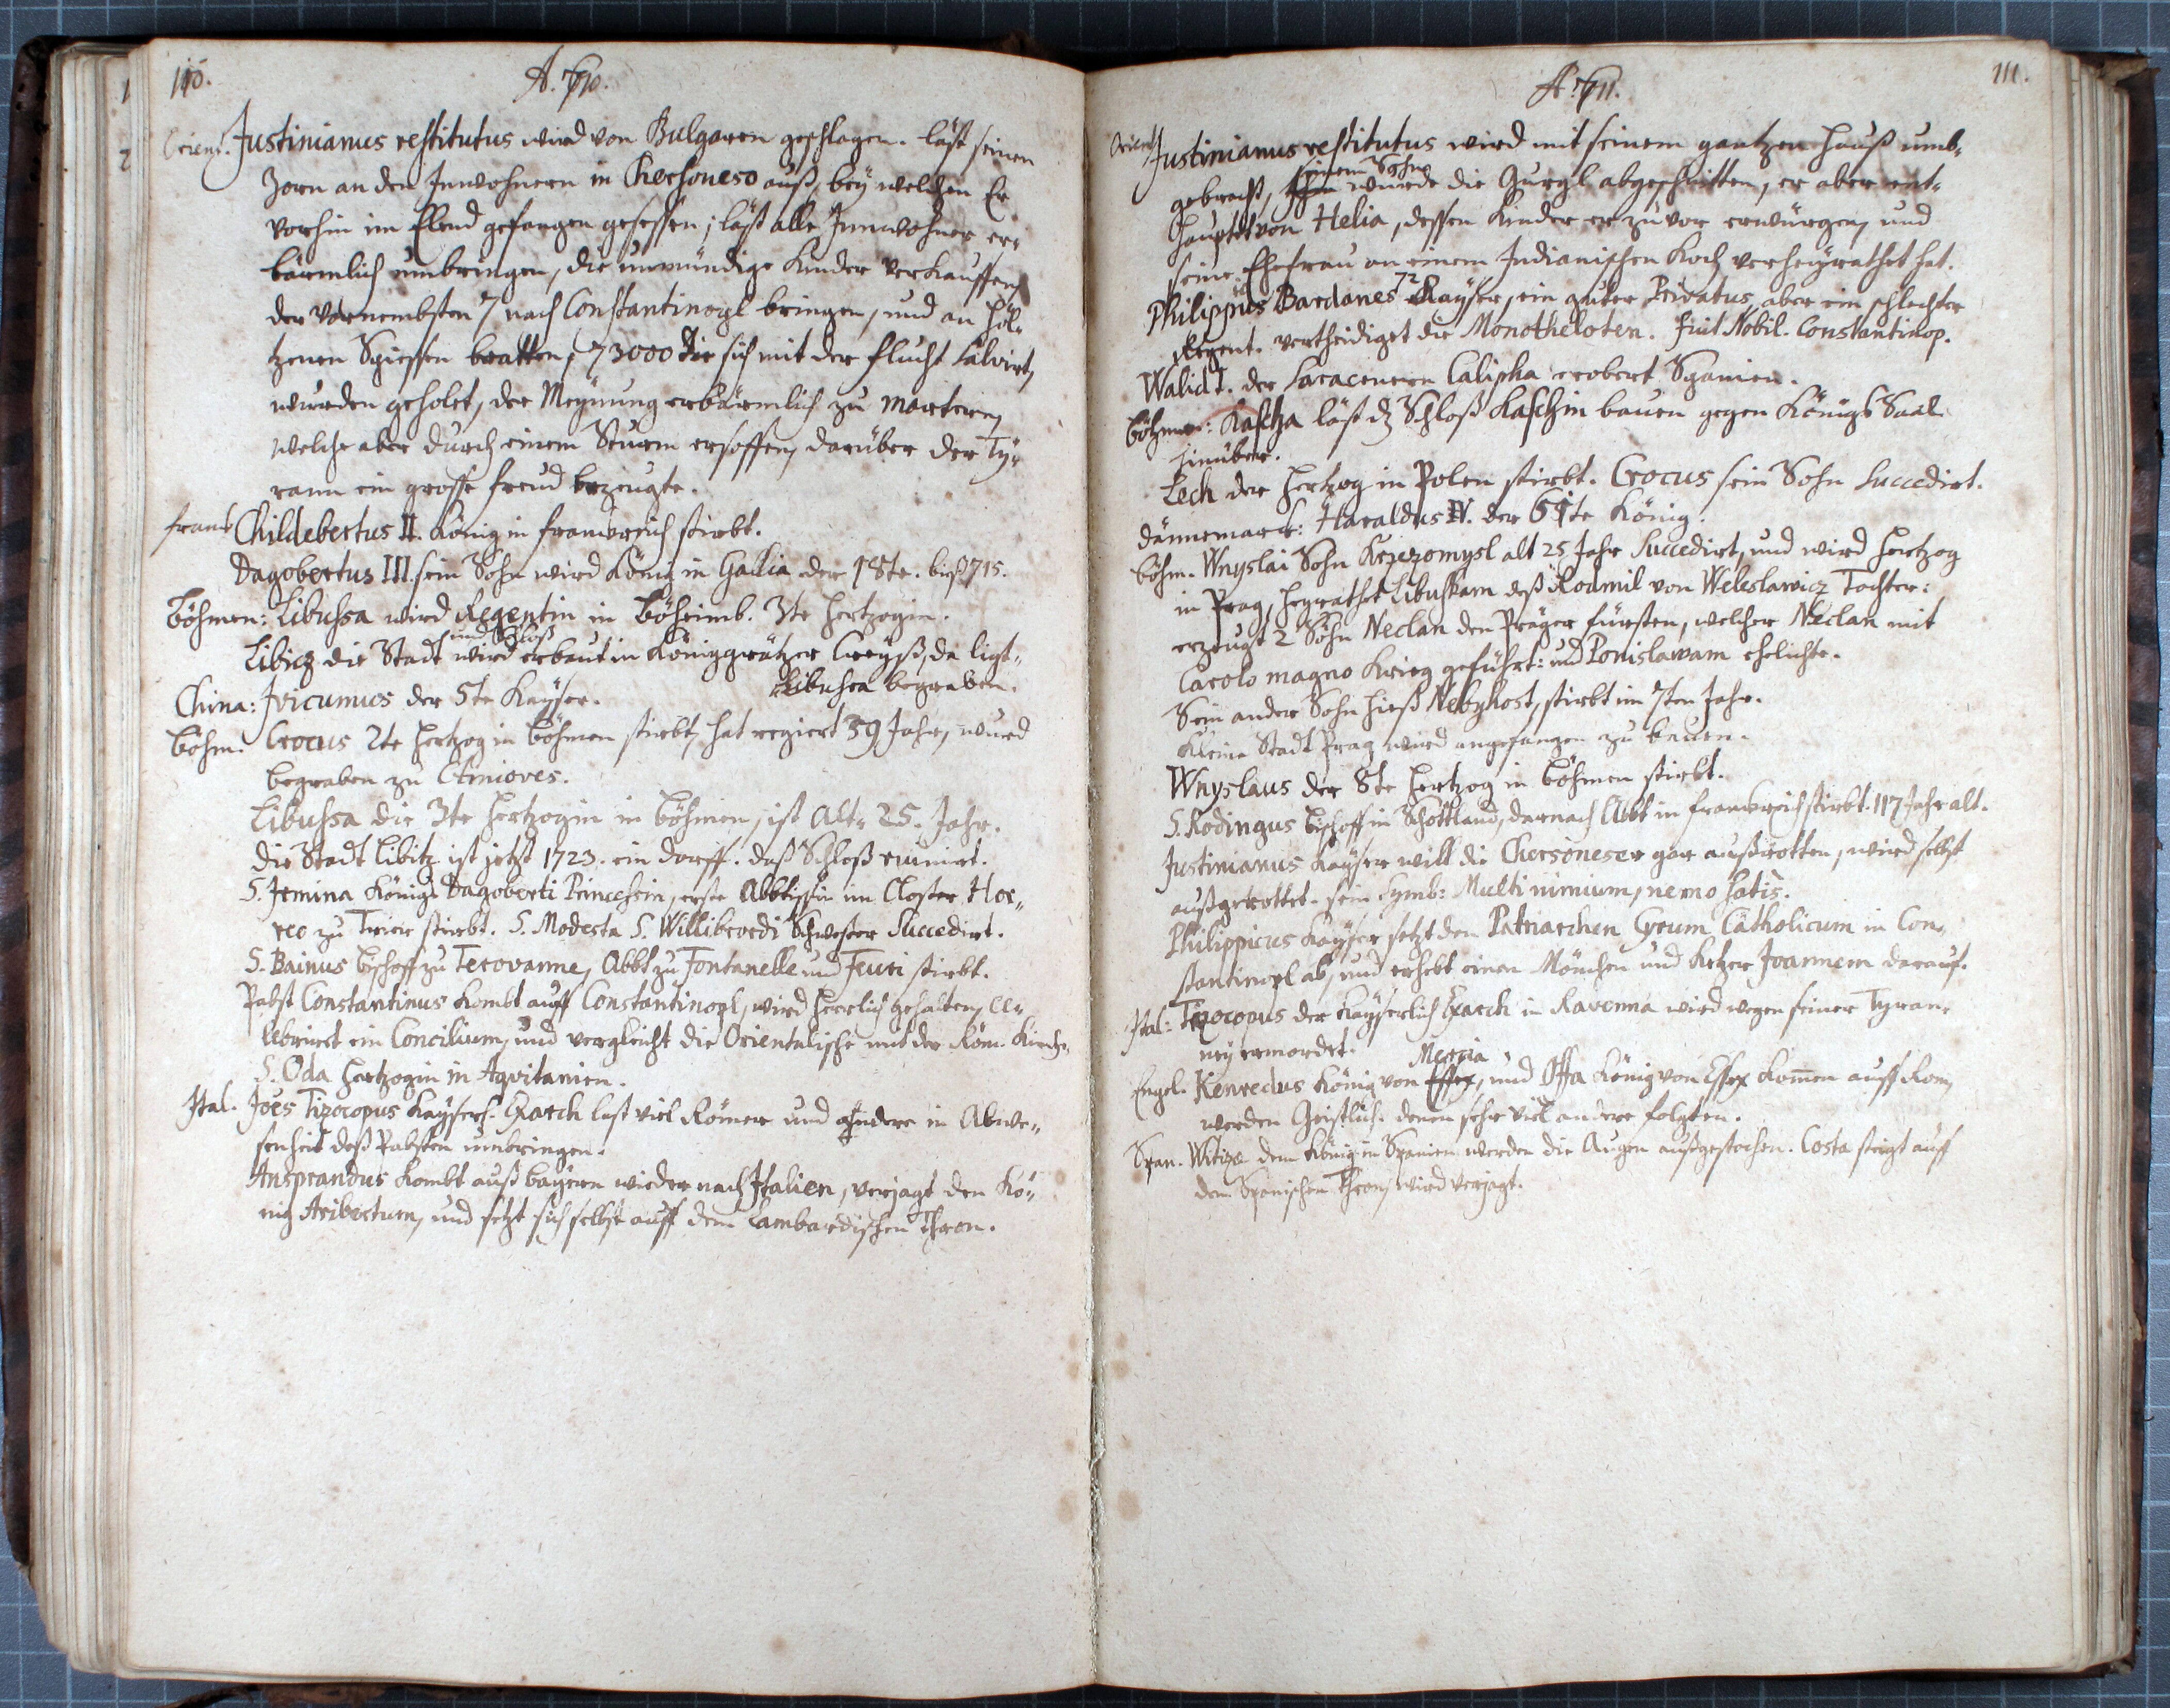 110.
A. 710.
Orient. Justinianus restitutus wird von Bulgaren geschlagen. läst seinen
Zorn an den Inwohnern in Chersoneso auß, bey welchen Er
vorhin im Elend gefangen gesessen; läst alle Innwohner er-
bärmlich umbringen, die unmündige Kinder verkauffen,
der Vornembsten 7 nach Constantinopl bringen, und an höl-
tzenen Spiessen bratten, 73000 die sich mit der flucht salvirt,
wurden geholet, der Meynung erbärmlich zu martern,
welche aber durch einem Sturm ersoffen, darüber der Ty-
rann ein grosse freud bezeugte.
Frank Childebertus II. König in Franckreich stirbt.
Dagobertus III. sein Sohn wird König in Gallia der 18te. biß 715.
Böhmen: Libussa wird Regentin in Böheimb. 3te Hertzogin.
und Schloß
Libicz die Stadt wird erbaut in Königgrätzer Creyß, da ligt
Libussa begraben.
China: Ivicumus der 5te Kayser.
Böhm. Crocus 2te Hertzog in Böhmen stirbt, hat regiert 39 Jahr, wurd
begraben zu Ctinioves.
Libussa die 3te Hertzogin in Böhmen, ist Alt 25. Jahr.
die Stadt Libitz ist jetzt 1723. ein Dorff. daß Schloß ruinirt.
S. Irmina Königs Dagoberti Princessin, erste Abbtissin im Closter Hor-
reo zu Trier stirbt. S. Modesta S. Willibrordi Schwester Succedirt.
S. Bainus Bischoff zu Terovanne, Abbt zu Fontanelle und Feuri stirbt.
Pabst Constantinus kombt auff Constantinopl, wird herrlich gehalten, ce-
lebrirt ein Concilium, und vergleicht die Orientalische mit der Röm. Kirche.
S. Oda Hertzogin in Aqvitanien.
Ital. Joes Tizocopus Kayserl. Exarch last viel Römer und andere in Abwe-
senheit deß Pabsten umbringen.
Ansprandus kombt auß bayern wieder nach Italien, verjagt den Kö-
nig Aribertum, und setzt sich selbst auff dem Lambardischen Thron.
111.
A. 711.
Orient Justinianus restitutus wird mit seinem gantzen Hauß umb-
seinem Sohne
gebracht, ihm wurde die Gurgl abgeschnitten, er aber ent-
hauptet von Helia, dessen Kinder er zuvor erwürgen, und
seine Ehefrau an einem Indianischen Koch verheyrathet hat.
Philippus Bardanes 72 Kayser, ein guter Privatus, aber ein schlechter
Regent. vertheidiget die Monotheloten. fuit Nobil. Constantinop.
Walid I. der Saracenern Calipha erobert Spanien.
Böhmen: Kascha läst dz Schloß Kaschin bauen gegen Königs Saal
hinüber.
Lech der Hertzog in Polen stirbt. Crocus sein Sohn Succedirt.
Dännemarck: Haraldus IV. der 61te König.
Böhm. Wnyslai Sohn Krzezomysl alt 25 Jahr Succedirt, und wird Hertzog
in Prag, heyrathet Libuskam deß Rodmil von Weleslawicz Tochter:
erzeugt 2 Söhn Neclan den Prager fürsten, welcher Neclan mit
Carolo magno Krieg geführt: und Ponislawam ehelichte.
Sein ander Sohn hieß Nebyhost, stirbt im 7ten Jahr.
Kleine Stadt Prag wird angefangen zu bauen.
Wnyslaus der 8te Hertzog in Böhmen stirbt.
S. Rodingus Bischoff in Schottland, darnach Abbt in Franckreich stirbt. 117 Jahr alt.
Justinianus Kayser will die Chersoneser gar außrotten, wird selbst
außgerottet. sein Symb: Multi nimium, nemo satis.
Philippicus Kayser setzt den Patriarchen Cyrum Catholicum in Con-
stantinopl ab, und erhebt einen Mönchen und Ketzer Joannem darauf.
Ital: Tizocopus der Kayserlich Exarch in Ravenna wird wegen seiner Tyran-
ney ermordet.
Mercia
Engel. Kenredus König von Essex, und Offa König von Essex kommen auff Rom,
werden Geistlich. denen sehr viel andere folgten.
Span. Witiza dem König in Spanien werden die Augen außgestochen. Costa steigt auff
dem Spanischen Thron, wird verjagt.